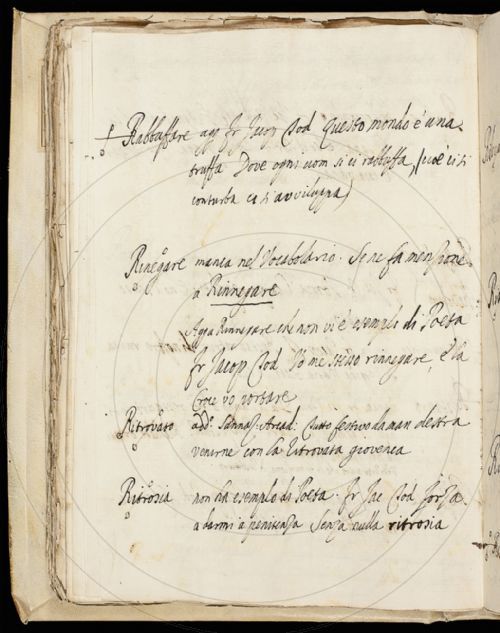 Rabbuffare agg Fr Jacop Cod Questo mondo è una
truffa Dove ogni uom si ci rabbuffa, (cioè ci si
conturba e ci si avviluppa)
Rinegare manca nel Vocabolario. Se ne fa menzione
a Rinnegare
Agg a Rinnegare che non vi è esempio di Poeta
Fr Jacop Cod Vo me stesso rinnegare, E la
Croce vo portare
Ritrovato add: Sannaz: Arcad: Tutto festivo da man destra
venirne con la ritrovata giovenca
Ritrosia non ha esempio di Poeta. Fr Jac Cod Forza
a darmi a penitenza Senza nulla ritrosia